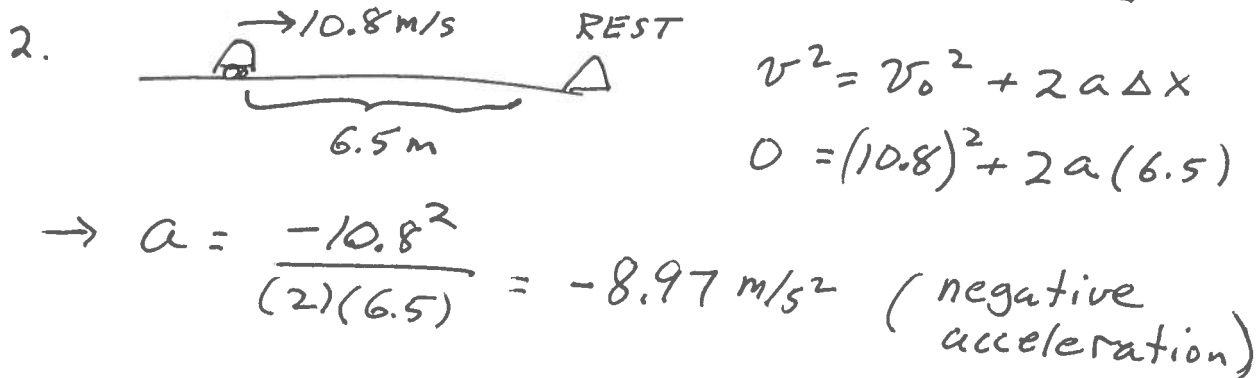 2.
→10.8 m/s
REST
6.5 m
v² = v₀² + 2aΔx
0 = (10.8)² + 2a(6.5)
→ a = -10.8² / (2)(6.5) = -8.97 m/s² (negative
acceleration)